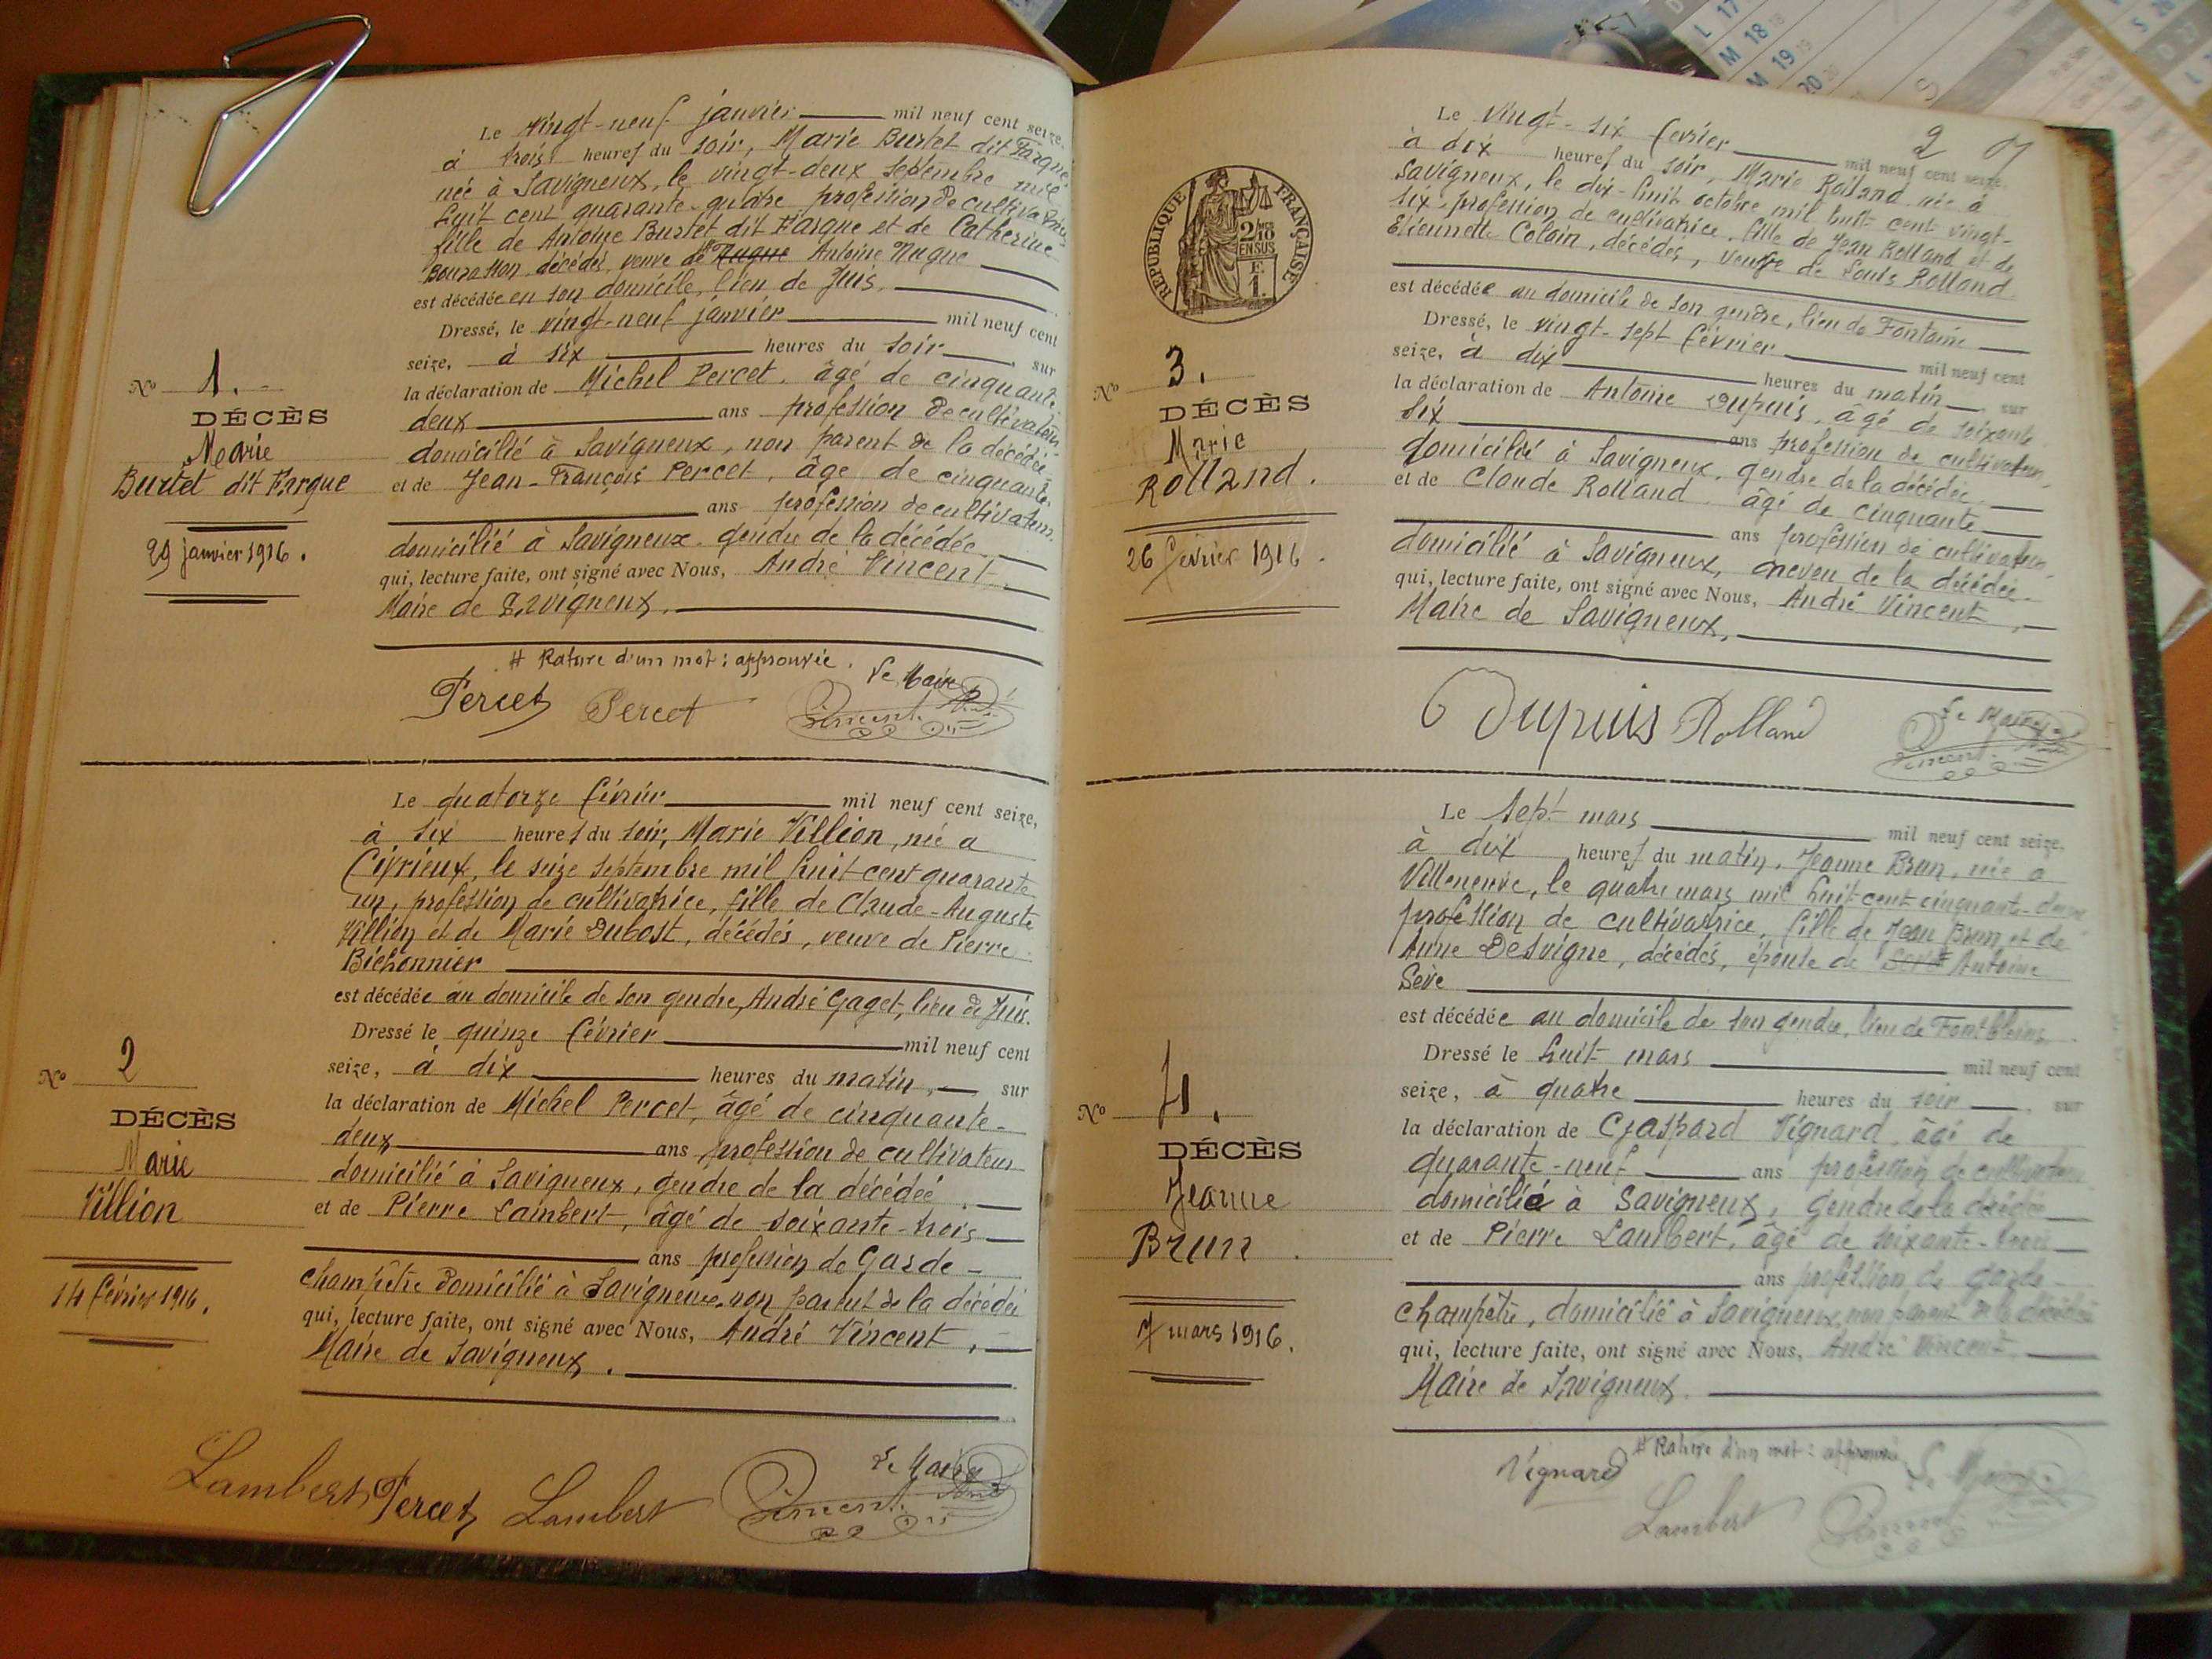 Le vingt-neuf janvier mil neuf cent seize,
à trois heures du soir, Marie Burtet dit Fargue
née à Savigneux, le vingt-deux septembre mil
huit cent quarante-quatre profession de cultivatrice
fille de Antoine Burtet dit Fargue et de Catherine
décédés, veuve de # Nugue Antoine Nugue
est décédée en son domicile, lieu de Juis.
Dressé, le vingt-neuf janvier mil neuf cent
seize, à six heures du soir, sur
la déclaration de Michel Percet, âgé de cinquante
deux ans profession de cultivateur
domicilié à Savigneux, non parent de la décédée
et de Jean-François Percet, âgé de cinquante
ans profession de cultivateur
domicilié à Savigneux. gendre de la décédée
qui, lecture faite, ont signé avec Nous, André Vincent
Maire de Savigneux.
# Rature d'un mot : approuvée. Le Maire
Percet Percet Vincent
No 1.
DÉCÈS
Marie
Burtet dit Fargue
29 janvier 1916.
Le quatorze février mil neuf cent seize,
à six heures du soir, Marie Villion, née a
Civrieux, le seize septembre mil huit cent quarante
un, profession de cultivatrice, fille de Claude-Auguste
Villion et de Marie Dubost, décédés, veuve de Pierre
Bichonnier
est décédée au domicile de son gendre, André Gaget, lieu de Juis.
Dressé le quinze février mil neuf cent
seize, à dix heures du matin, sur
la déclaration de Michel Percet, âgé de cinquante-
deux ans profession de cultivateur
domicilié à Savigneux, gendre de la décédée
et de Pierre Lambert, âgé de soixante-trois
ans profession de Garde-
champêtre domicilié à Savigneux, non parent de la décédée
qui, lecture faite, ont signé avec Nous, André Vincent,
Maire de Savigneux.
Le Maire
Lambert Percet Lambert Vincent
No 2
DÉCÈS
Marie
Villion
14 février 1916.
2
RÉPUBLIQUE FRANÇAISE
2/10
EN SUS
F.
1.
Le vingt-six février mil neuf cent seize,
à dix heures du soir, Marie Rolland née à
Savigneux, le dix-huit octobre mil huit cent vingt-
six, profession de cultivatrice, fille de Jean Rolland et de
Etiennette Colain, décédés, veuve de Louis Rolland
est décédée au domicile de son gendre, lieu de Fontaine
Dressé, le vingt-sept février mil neuf cent
seize, à dix heures du matin, sur
la déclaration de Antoine Dupuis, âgé de soixante
six ans profession de cultivateur,
domicilié à Savigneux, gendre de la décédée
et de Claude Rolland, âgé de cinquante
ans profession de cultivateur,
domicilié à Savigneux, neveu de la décédée
qui, lecture faite, ont signé avec Nous, André Vincent,
Maire de Savigneux,
Dupuis Rolland Le Maire
Vincent
No 3.
DÉCÈS
Marie
Rolland.
26 février 1916.
Le sept mars mil neuf cent seize,
à dix heures du matin, Jeanne Brun, née a
Villeneuve, le quatre mars mil huit cent cinquante-deux
profession de cultivatrice, fille de Jean Brun et de
Anne Desvigne, décédés, épouse de Antoine
Sève
est décédée au domicile de son gendre, lieu de
Dressé le huit mars mil neuf cent
seize, à quatre heures du soir, sur
la déclaration de Gaspard Vignard, âgé de
quarante-neuf ans profession de cultivateur
domicilié à Savigneux, gendre de la décédée
et de Pierre Lambert, âgé de soixante-trois
ans profession de garde-
champêtre, domicilié à Savigneux, non parent de la décédée
qui, lecture faite, ont signé avec Nous, André Vincent
Maire de Savigneux.
# Rature d'un mot : approuvée. Le Maire
Vignard
Lambert Vincent
No 4.
DÉCÈS
Jeanne
Brun.
7 mars 1916.
L 17
M 18 18
M 19 19
20 20